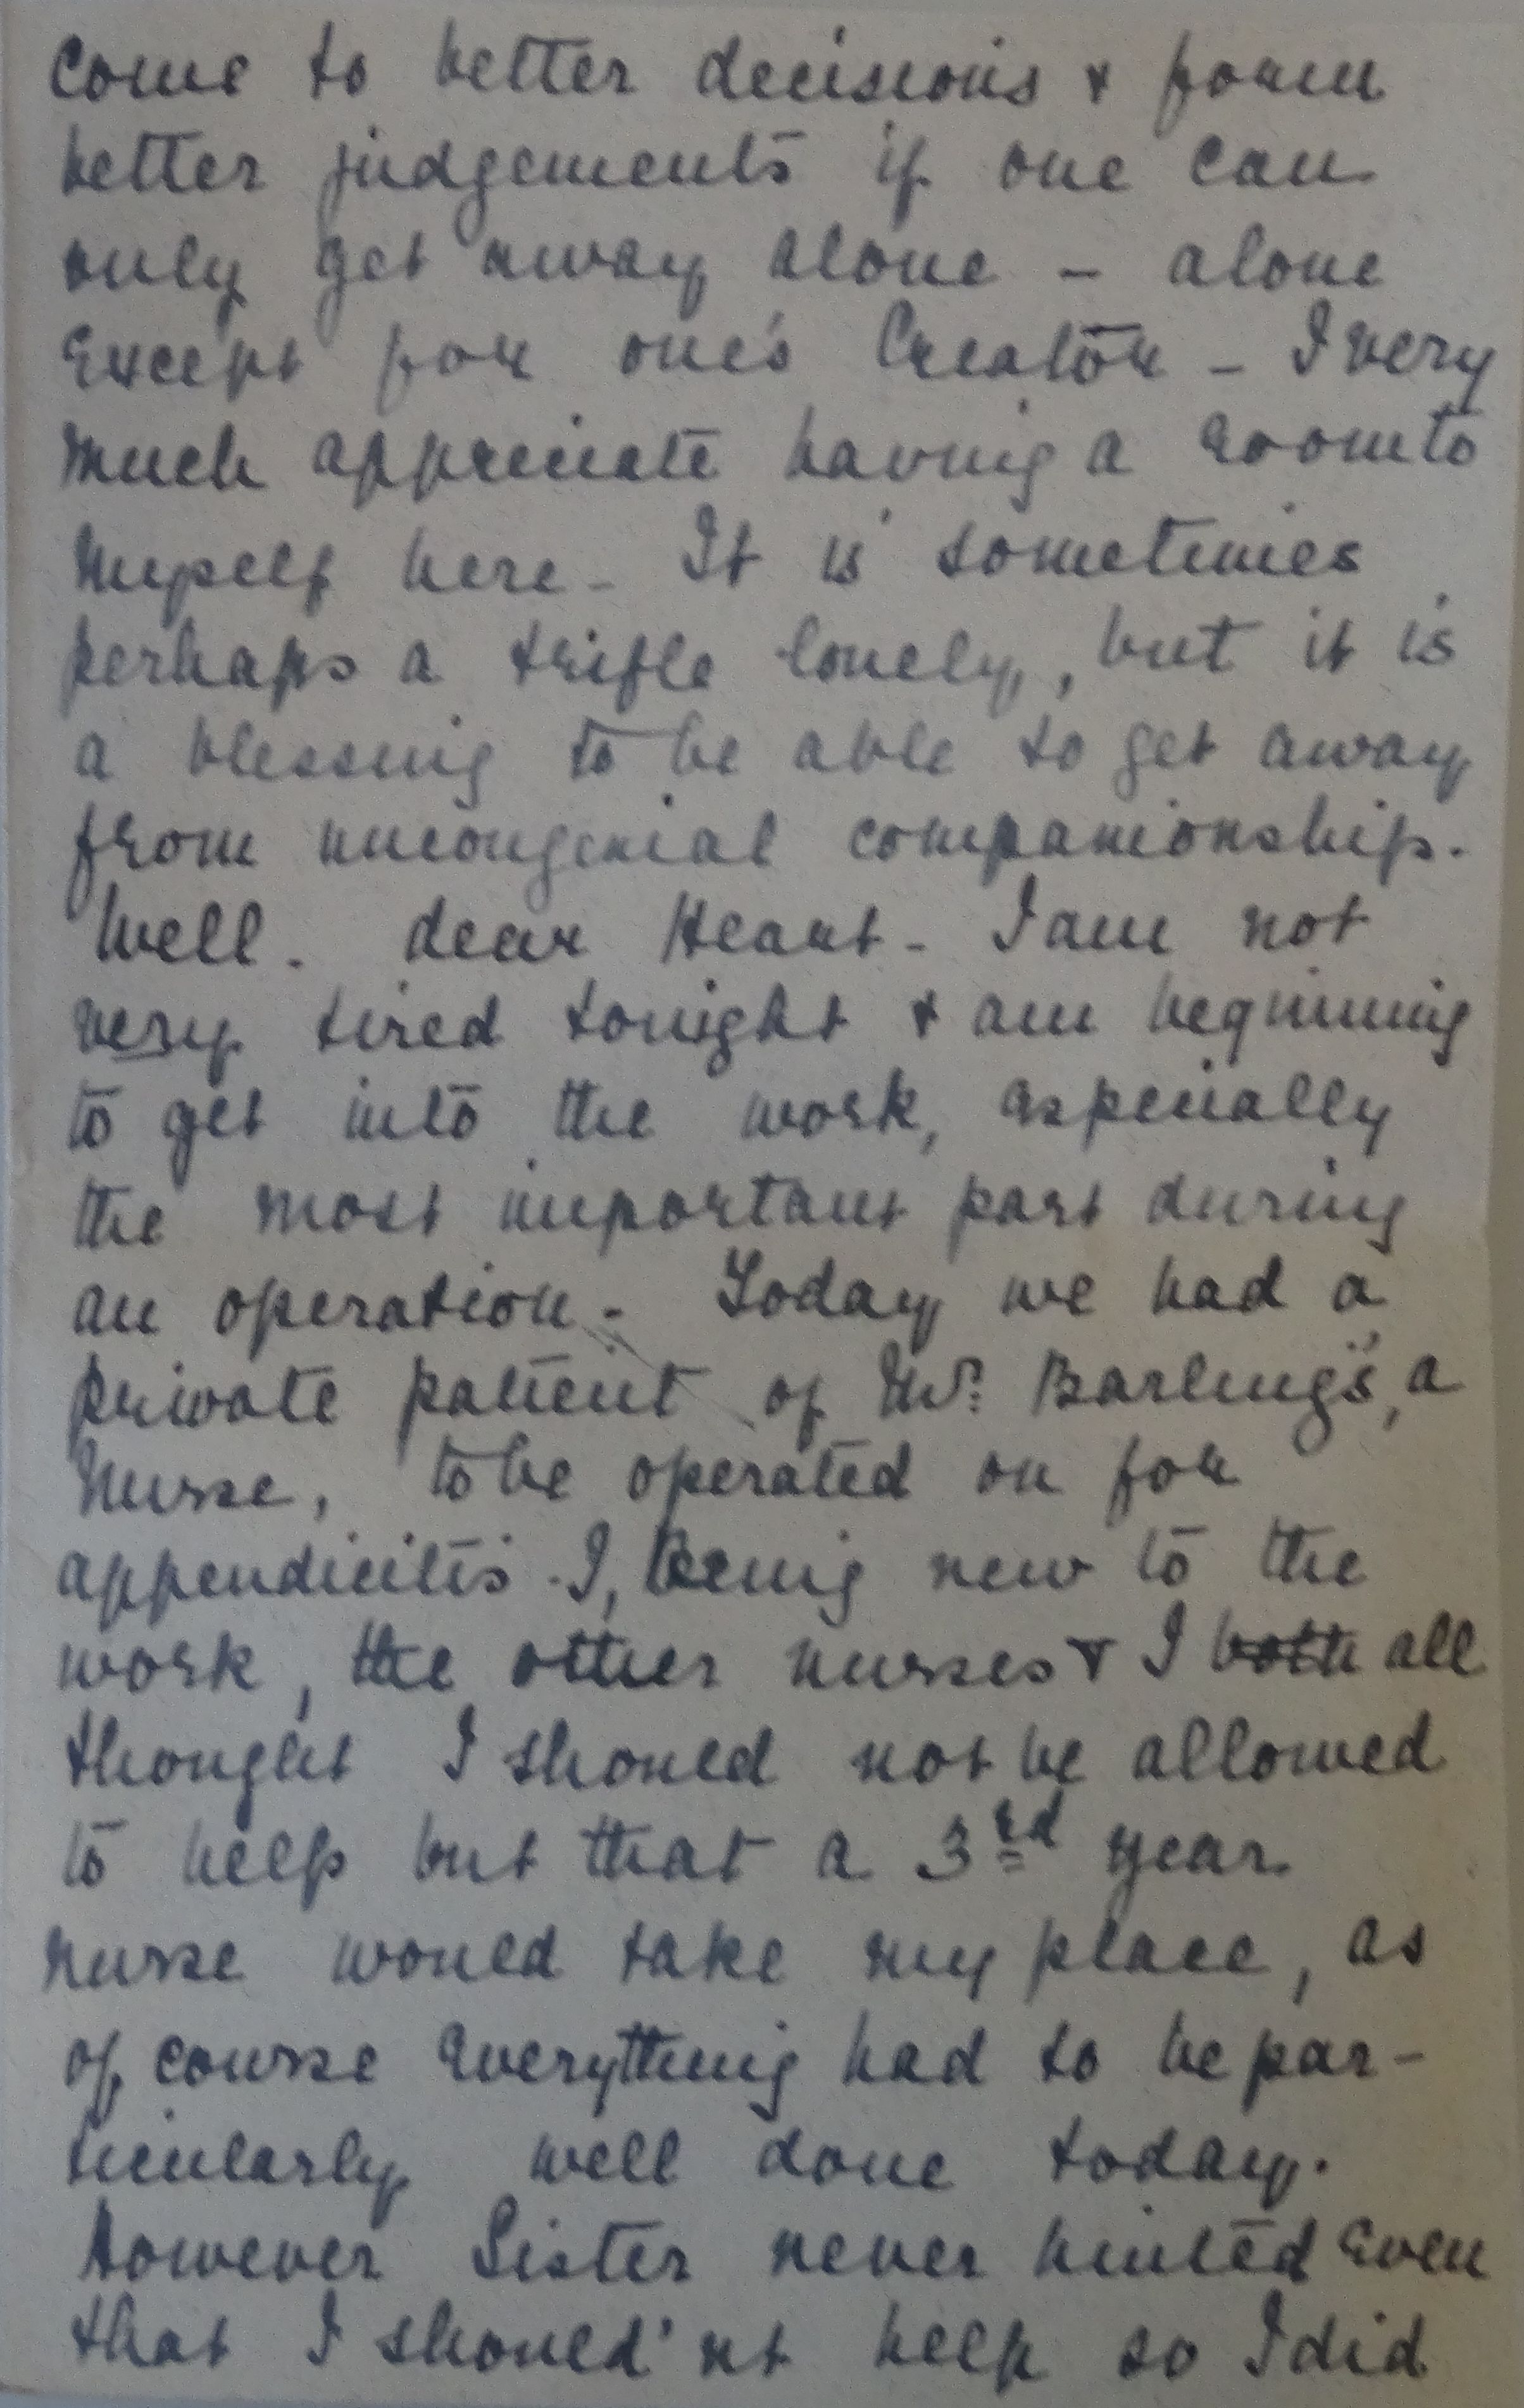 come to better decisions & form
better judgements if one can
only get away alone – alone
except for one's Creator – I very
much appreciate having a room to
myself here – It is sometimes
perhaps a trifle lonely, but it is
a blessing to be able to get away
from uncongenial companionship.
Well. dear Heart – I am not
very tired tonight & am beginning
to get into the work, especially
the most important part during
an operation – Today we had a
private patient of Mr. Barling's, a
nurse, to be operated on for
appendicitis. I, being new to the
work, the other nurses & I both all
thought I should not be allowed
to help but that a 3rd year
nurse would take my place, as
of course everything had to be par-
ticularly well done today.
However Sister never hinted even
that I should'nt help so I did